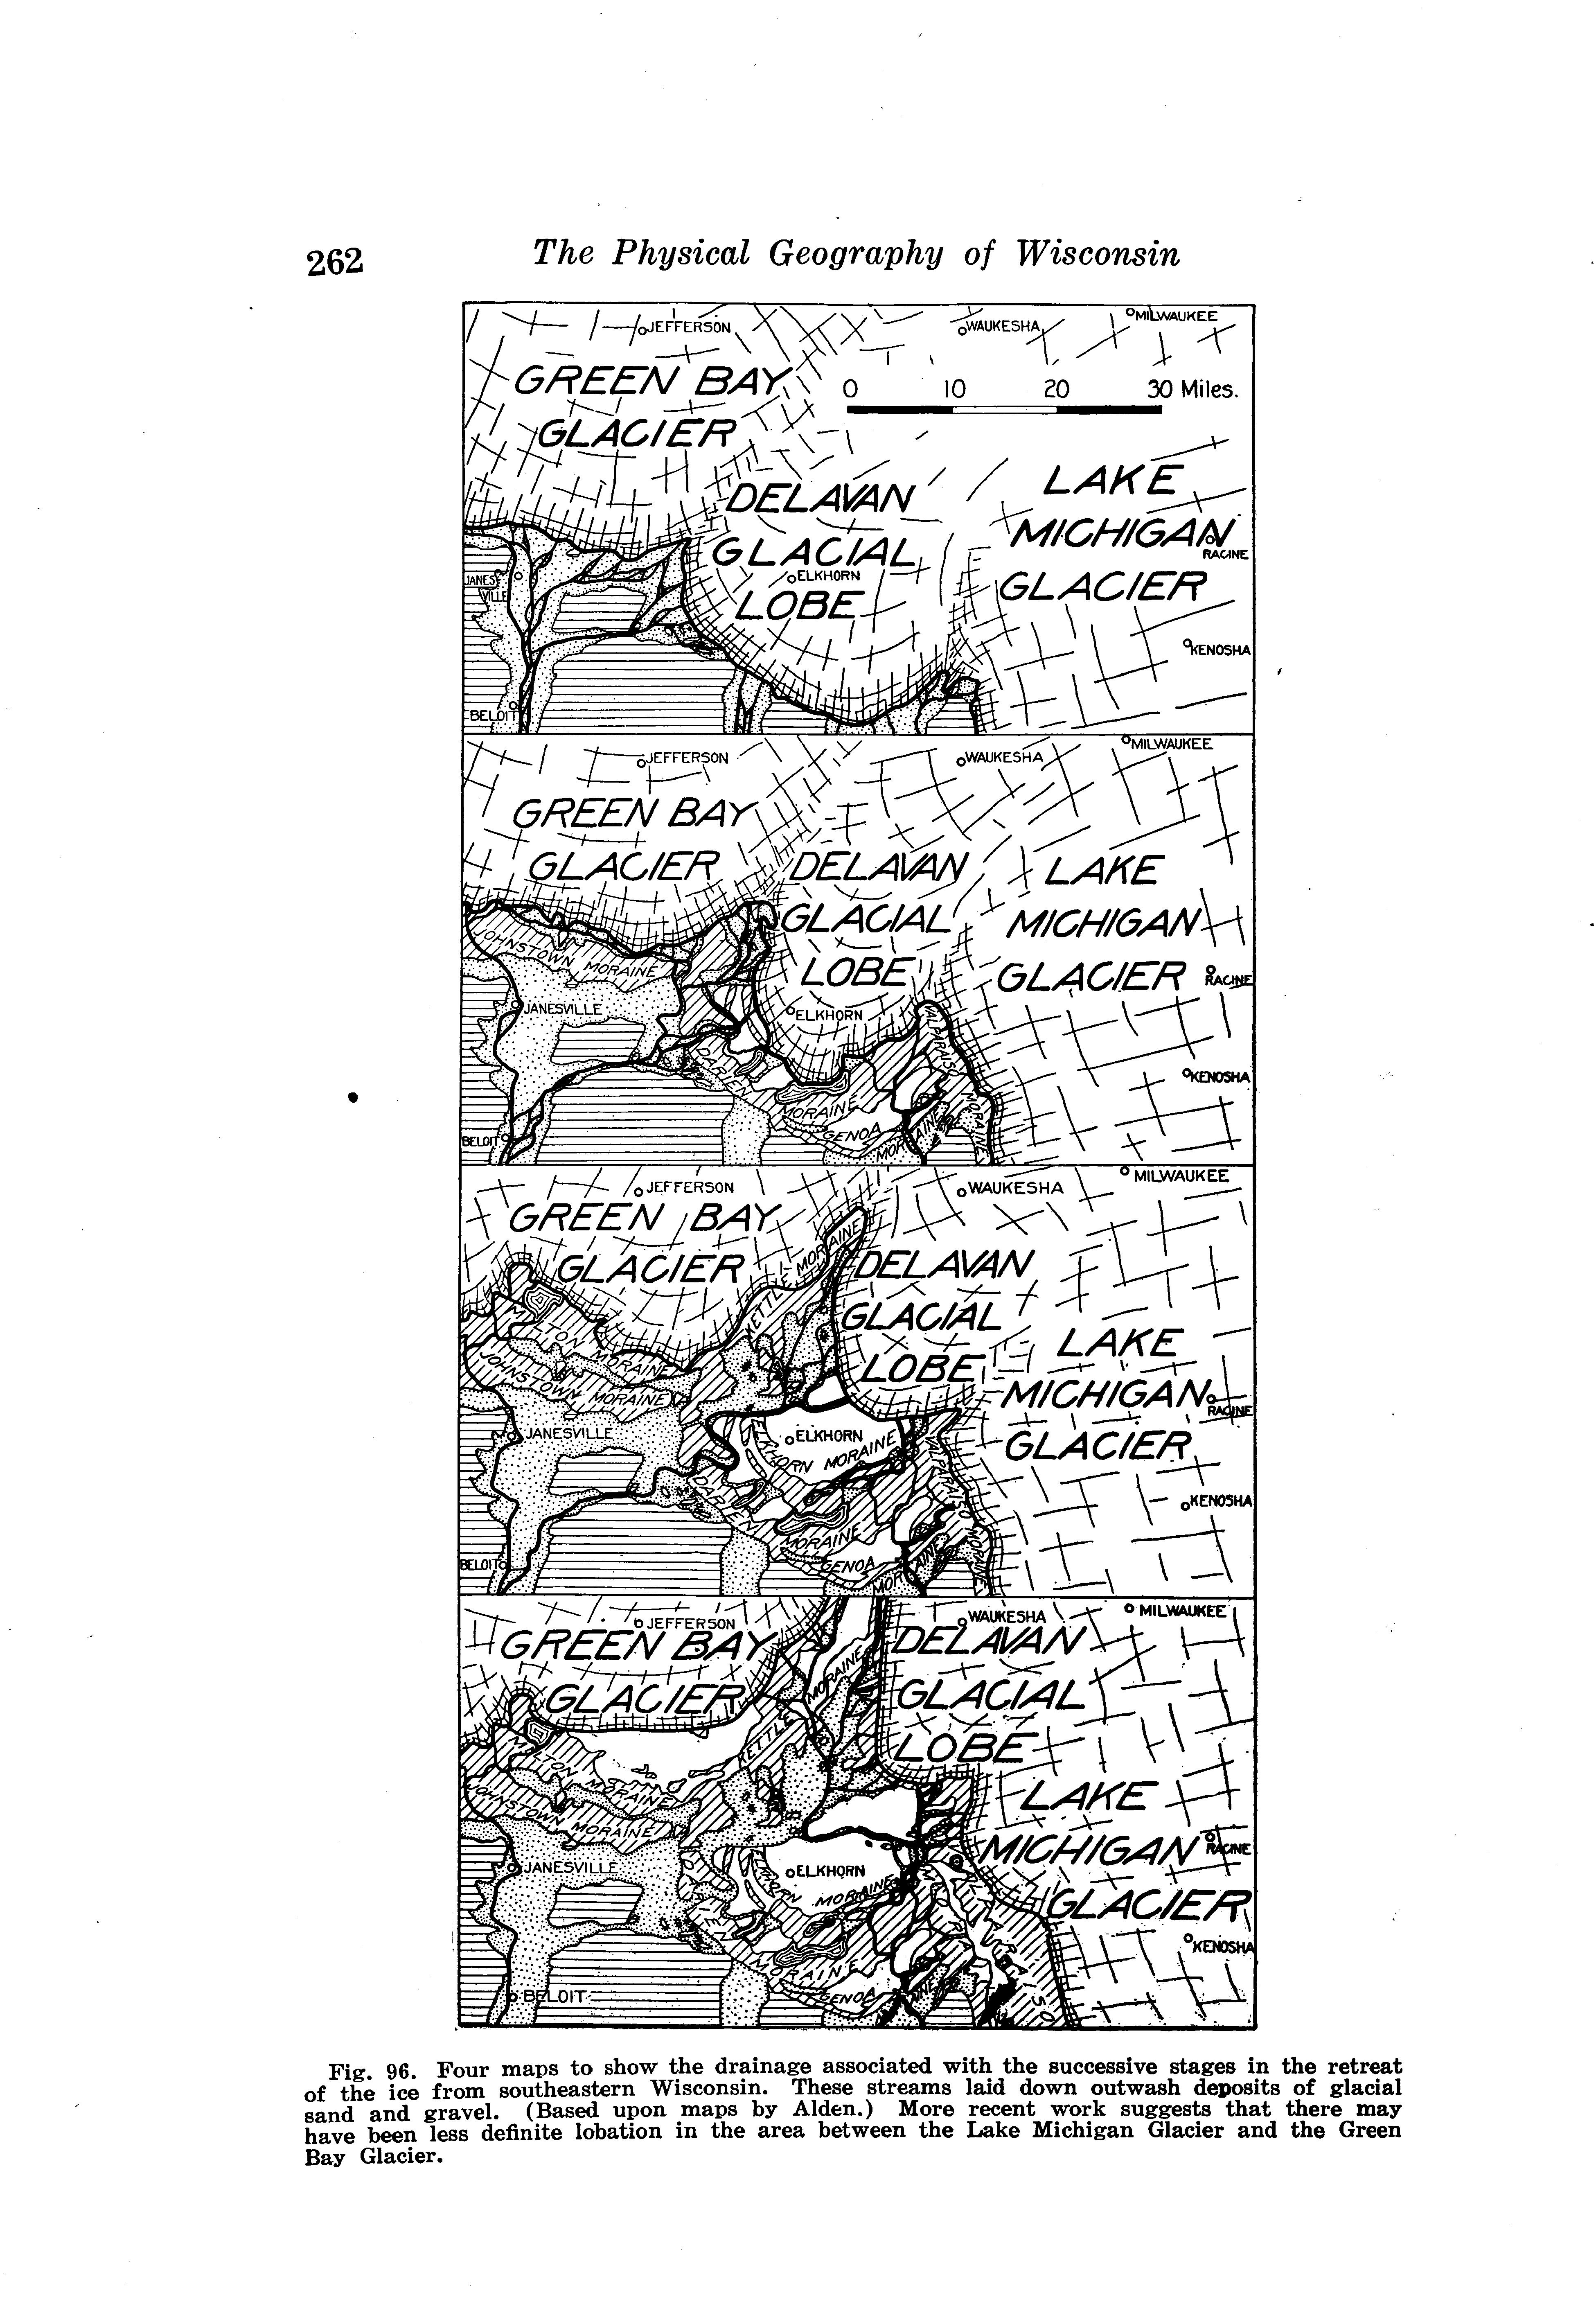 262
The Physical Geography of Wisconsin
JEFFERSON
WAUKESHA
MILWAUKEE
GREEN BAY
GLACIER
0 10 20 30 Miles.
DELAVAN
GLACIAL
LOBE
LAKE
MICHIGAN
GLACIER
RACINE
JANES
VILLE
ELKHORN
KENOSHA
BELOIT
JEFFERSON
WAUKESHA
MILWAUKEE
GREEN BAY
GLACIER
DELAVAN
GLACIAL
LOBE
LAKE
MICHIGAN
GLACIER
RACINE
JOHNSTOWN MORAINE
JANESVILLE
ELKHORN
VALPARAISO
MORAINE
KENOSHA
DARIEN
MORAINE
GENOA
MORAINE
BELOIT
JEFFERSON
WAUKESHA
MILWAUKEE
GREEN BAY
GLACIER
KETTLE MORAINE
DELAVAN
GLACIAL
LOBE
LAKE
MICHIGAN
GLACIER
RACINE
MILTON MORAINE
JOHNSTOWN MORAINE
JANESVILLE
ELKHORN
ELKHORN MORAINE
VALPARAISO MORAINE
KENOSHA
DARIEN
MORAINE
GENOA
MORAINE
BELOIT
JEFFERSON
WAUKESHA
MILWAUKEE
GREEN BAY
GLACIER
KETTLE MORAINE
DELAVAN
GLACIAL
LOBE
LAKE
MICHIGAN
GLACIER
RACINE
MILTON MORAINE
JOHNSTOWN MORAINE
JANESVILLE
ELKHORN
MORAINE
KENOSHA
MORAINE
GENOA
BELOIT
Fig. 96. Four maps to show the drainage associated with the successive stages in the retreat
of the ice from southeastern Wisconsin. These streams laid down outwash deposits of glacial
sand and gravel. (Based upon maps by Alden.) More recent work suggests that there may
have been less definite lobation in the area between the Lake Michigan Glacier and the Green
Bay Glacier.